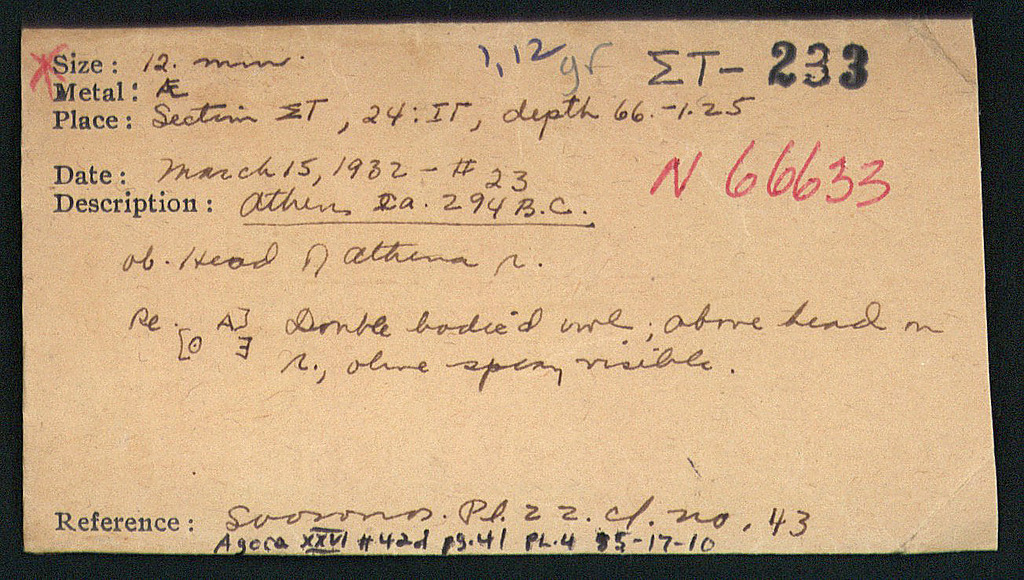 Size: 12. mm. 1,12 gr ΣT- 233
Metal: Æ
Place: Section ΣT, 24:ΙΓ, depth 66.-1.25
Date: March 15, 1932 - # 23 N 66633
Description: Athens ca. 294 B.C.
ob. Head of Athena r.
Re. A] Double bodied owl; above head on
[⊙ Ǝ r., olive spray visible.
Reference: Svoronos. Pl. 22. cf. no. 43
Agora XXVI #42d pg.41 PL.4 35-17-10